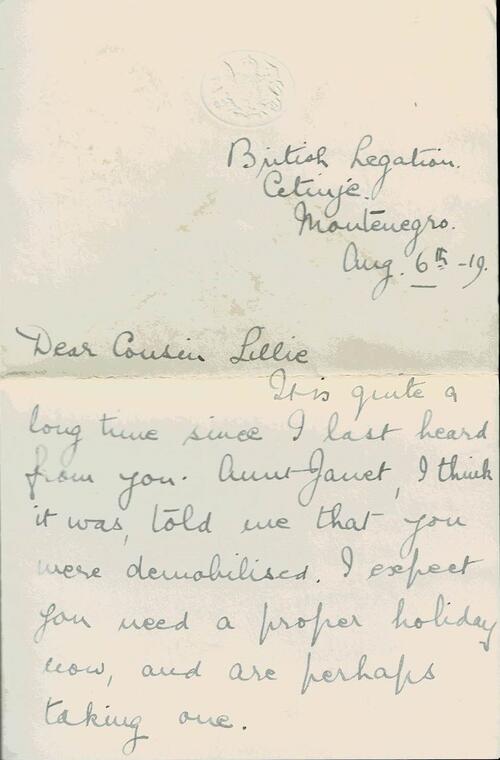 British Legation.
Cetinje.
Montenegro.
Aug. 6th -19.
Dear Cousin Lillie
It is quite a
long time since I last heard
from you. Aunt Janet, I think
it was, told me that you
were demobilised. I expect
you need a proper holiday
now, and are perhaps
taking one.